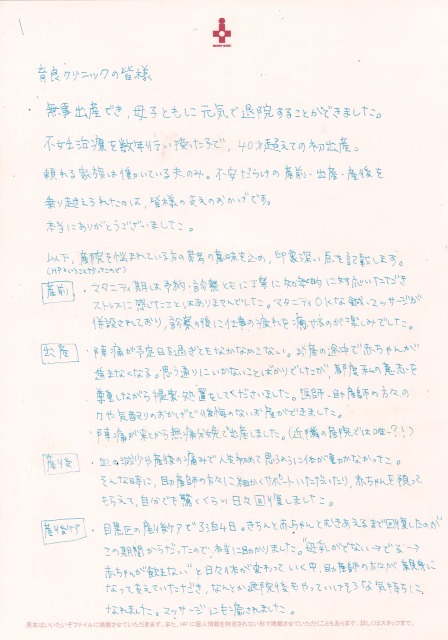 1
育良クリニックの皆様
・無事出産でき、母子ともに元気で退院することができました。
不妊治療を数年行い授かった子で、40才超えての初出産。
頼れる家族は働いている夫のみ。不安だらけの産前・出産・産後を
乗り越えられたのは、皆様の支えのおかげです。
本当にありがとうございました。
以下、産院を悩まれている方の参考の意味を込め、印象深い点を記載します。
(HPということだったので)
産前
・マタニティ期は予約・診察ともに丁寧に効率的に対応いただき
ストレスに感じたことはありませんでした。マタニティOKな鍼・マッサージが
併設されており、診察の後に仕事の疲れを癒やせるのが楽しみでした。
出産
・陣痛が予定日を過ぎてもなかなかこない。お産の途中で赤ちゃんが
進まなくなる。思う通りにいかないことばかりでしたが、都度私の意志を
尊重しながら提案・処置をしてくださいました。医師・助産師の方々の
気配りのおかげで後悔のないお産ができました。
・陣痛が来てから無痛分娩で出産しました。(近隣の産院では唯一?!)
産後
・血の減少や産後の痛みで人生初めて思うように体が動かなかった。
そんな時に、助産師の方々に細かくサポートいただいたり、赤ちゃんを預って
もらえて、自分でも驚くくらい日々回復しました。
産後ケア
・目黒区の産後ケアで3泊4日。きちんと赤ちゃんとむきあえるまで回復したのが
この期間からだったので、本当に助かりました。"母乳がでない→でる→
赤ちゃんが飲まない"と日々体が変わっていく中、助産師の方々が親身に
なって支えていただき、なんとか退院後もやっていけそうな気持ちに
なれました。マッサージにも癒されました。
原本はいいたいそファイルに掲載させていただきます。また、HPに個人情報を特定されない形で掲載させていただくこともあります。詳しくはスタッフまで。